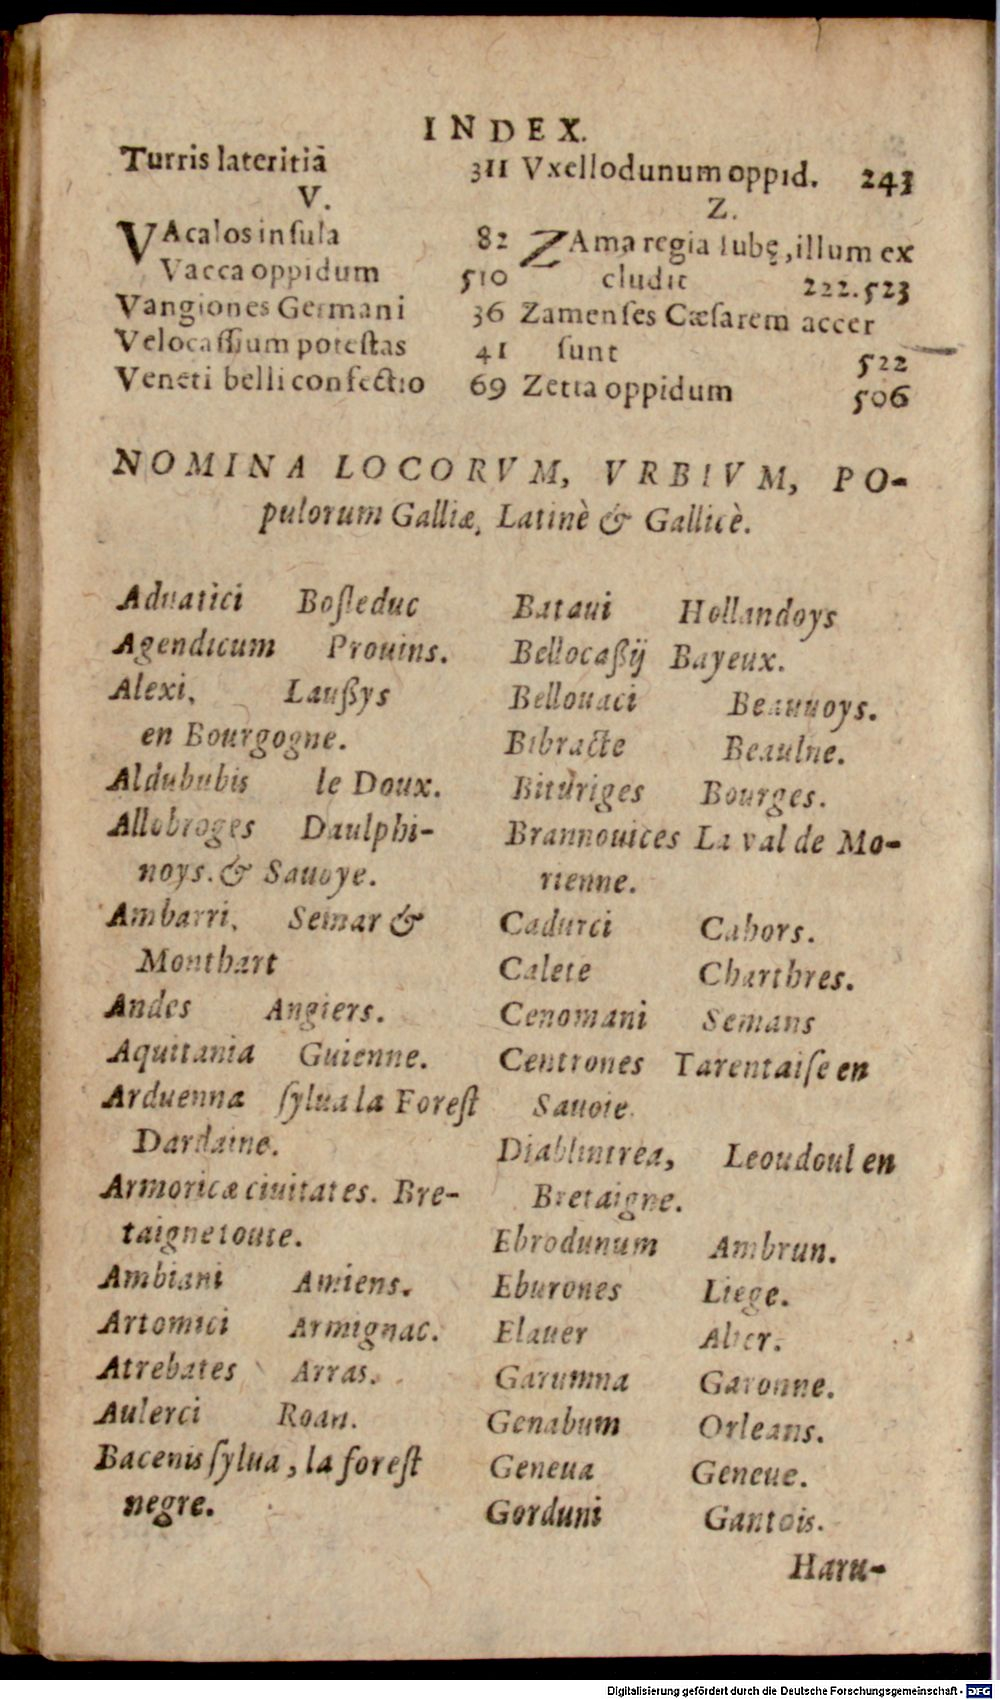 INDEX.
Turris lateritiā 311
V.
VAcalos inſula 82
Vacca oppidum 510
Vangiones Germani 36
Velocaſſium poteſtas 41
Veneti belli confectio 69
Vxellodunum oppid. 243
Z.
ZAma regia Iubę, illum ex
cludit 222.523
Zamenſes Cæſarem accer
ſunt 522
Zetta oppidum 506
NOMINA LOCORVM, VRBIVM, PO-
pulorum Galliæ, Latinè & Gallicè.
Aduatici Boſleduc
Agendicum Prouins.
Alexi, Laußys
en Bourgogne.
Aldububis le Doux.
Allobroges Daulphi-
noys. & Sauoye.
Ambarri, Semar &
Montbart
Andes Angiers.
Aquitania Guienne.
Arduenna ſylua la Foreſt
Dardaine.
Armoricæ ciuitates. Bre-
taigne toute.
Ambiani Amiens.
Artomici Armignac.
Atrebates Arras.
Aulerci Roan.
Bacenis ſylua, la foreſt
negre.
Bataui Hollandoys
Bellocaßij Bayeux.
Bellouaci Beauuoys.
Bibracte Beaulne.
Bituriges Bourges.
Brannouices La val de Mo-
rienne.
Cadurci Cahors.
Calete Charthres.
Cenomani Semans
Centrones Tarentaiſe en
Sauoie.
Diablintrea, Leoudoul en
Bretaigne.
Ebrodunum Ambrun.
Eburones Liege.
Elauer Alier.
Garumna Garonne.
Genabum Orleans.
Geneua Geneue.
Gorduni Gantois.
Haru-
Digitalisierung gefördert durch die Deutsche Forschungsgemeinschaft - DFG